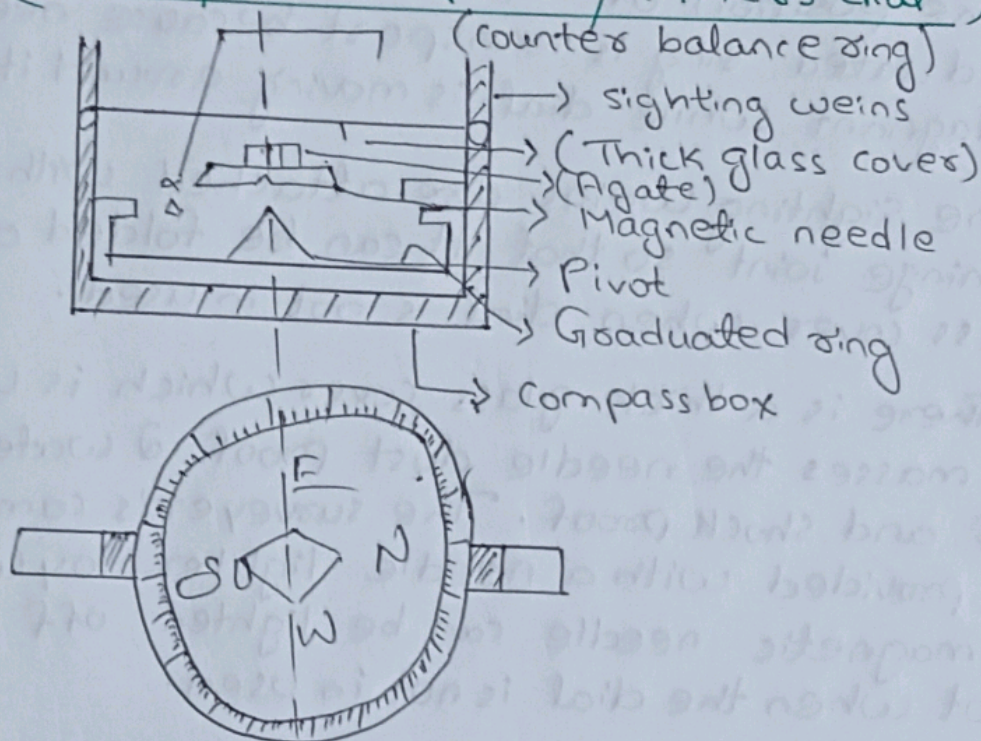 (counter balance ring)
sighting weins
(Thick glass cover)
(Agate)
Magnetic needle
Pivot
Graduated ring
Compass box
E
S
N
W